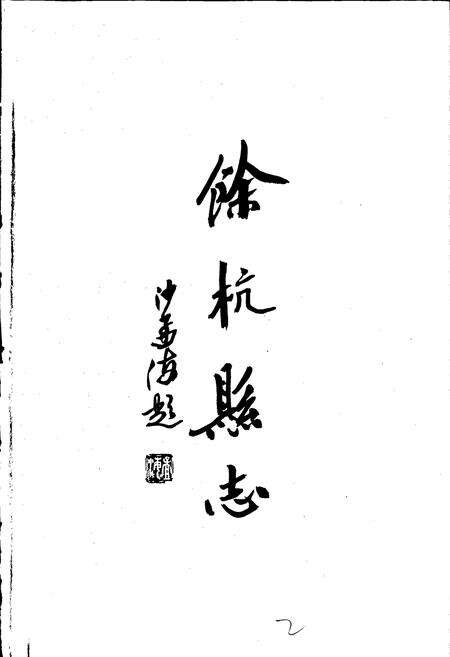 餘杭縣志
沙孟海題